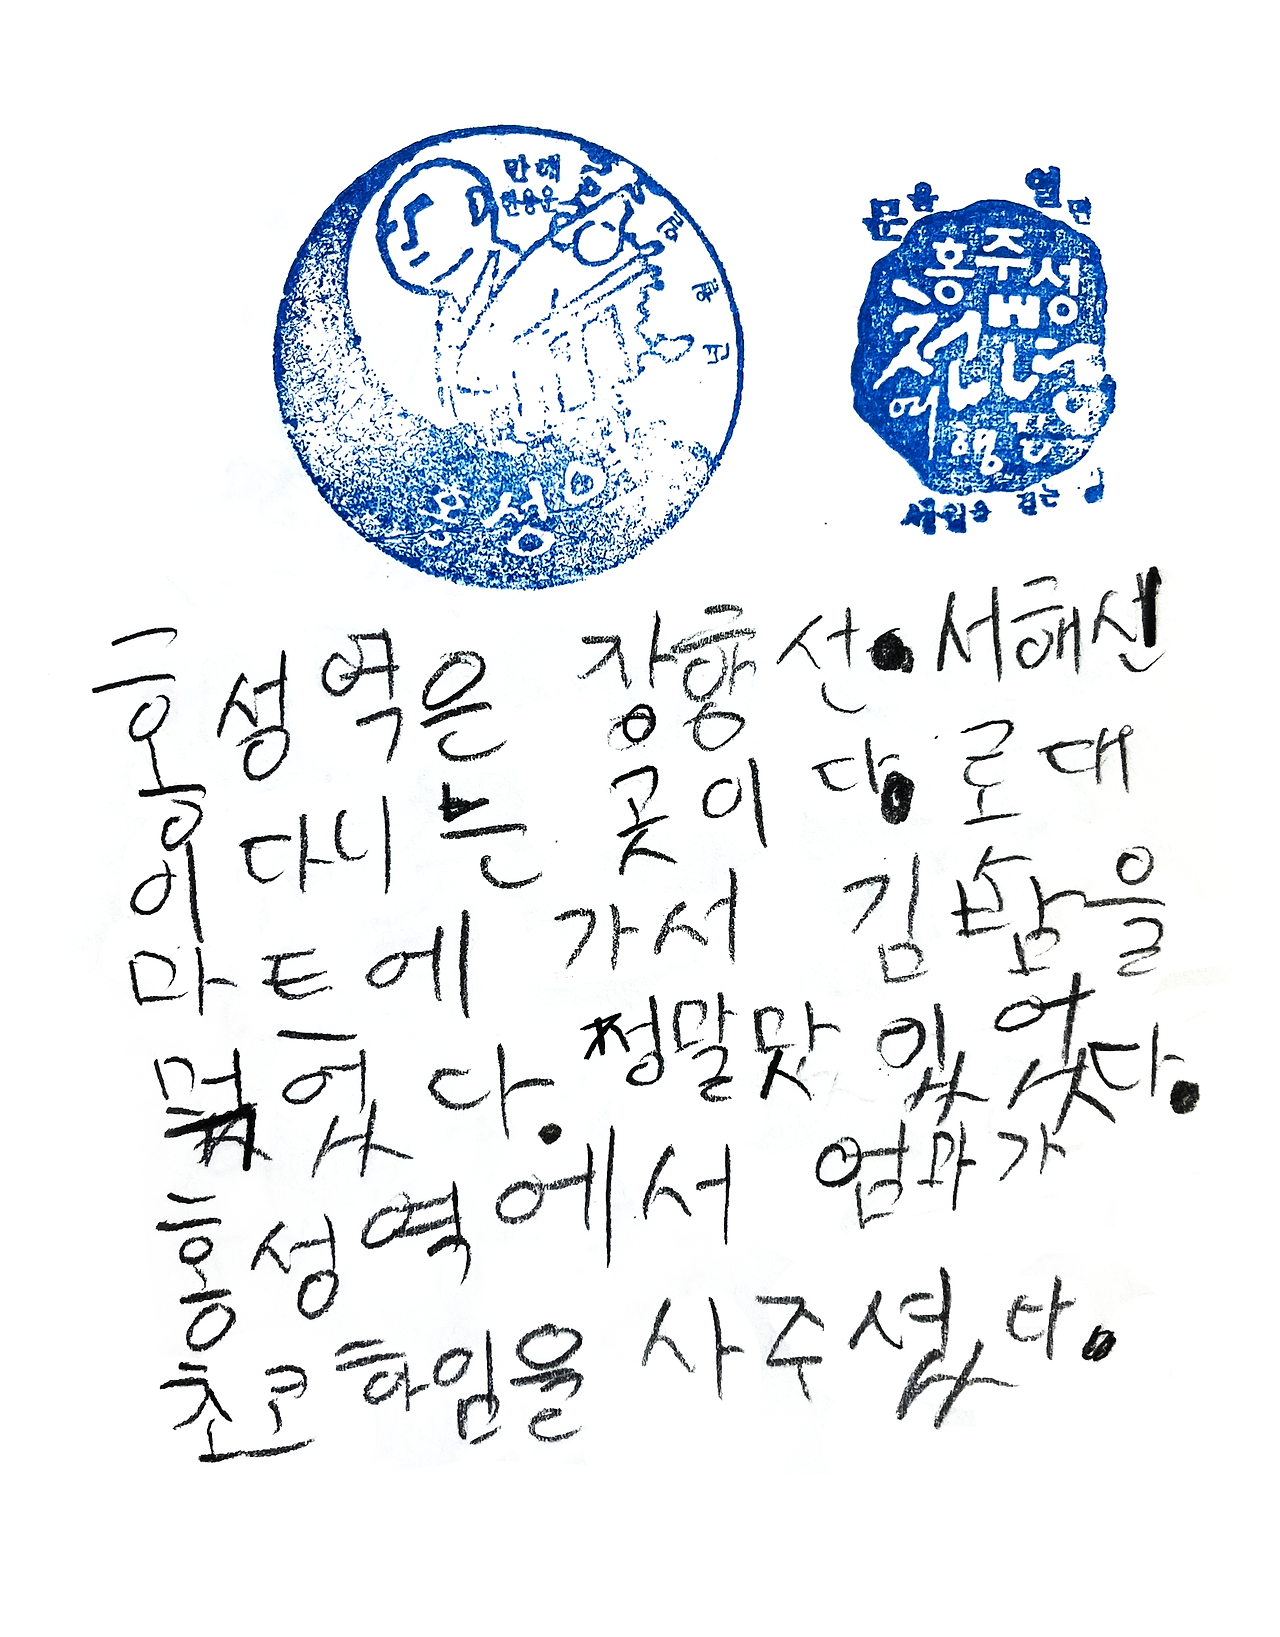 만해
한용운
홍성역
문을 열면
홍주성
천년
여행길
홍성역은 장항선.서해선
이 다니는 곳이다. 로대
마트에 가서 김밥을
먺었다. 정말맛있었다.
홍성역에서 엄마가
초코하임을 사주셨다.